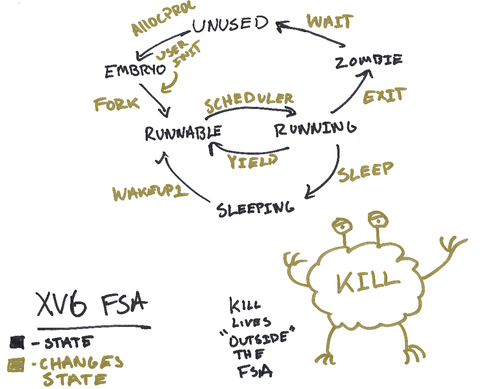 ALLOCPROC
UNUSED
WAIT
USER
INIT
EMBRYO
ZOMBIE
FORK
SCHEDULER
EXIT
RUNNABLE
RUNNING
YIELD
SLEEP
WAKEUP1
SLEEPING
KILL
XV6 FSA
- STATE
- CHANGES
STATE
KILL
LIVES
"OUTSIDE"
THE
FSA